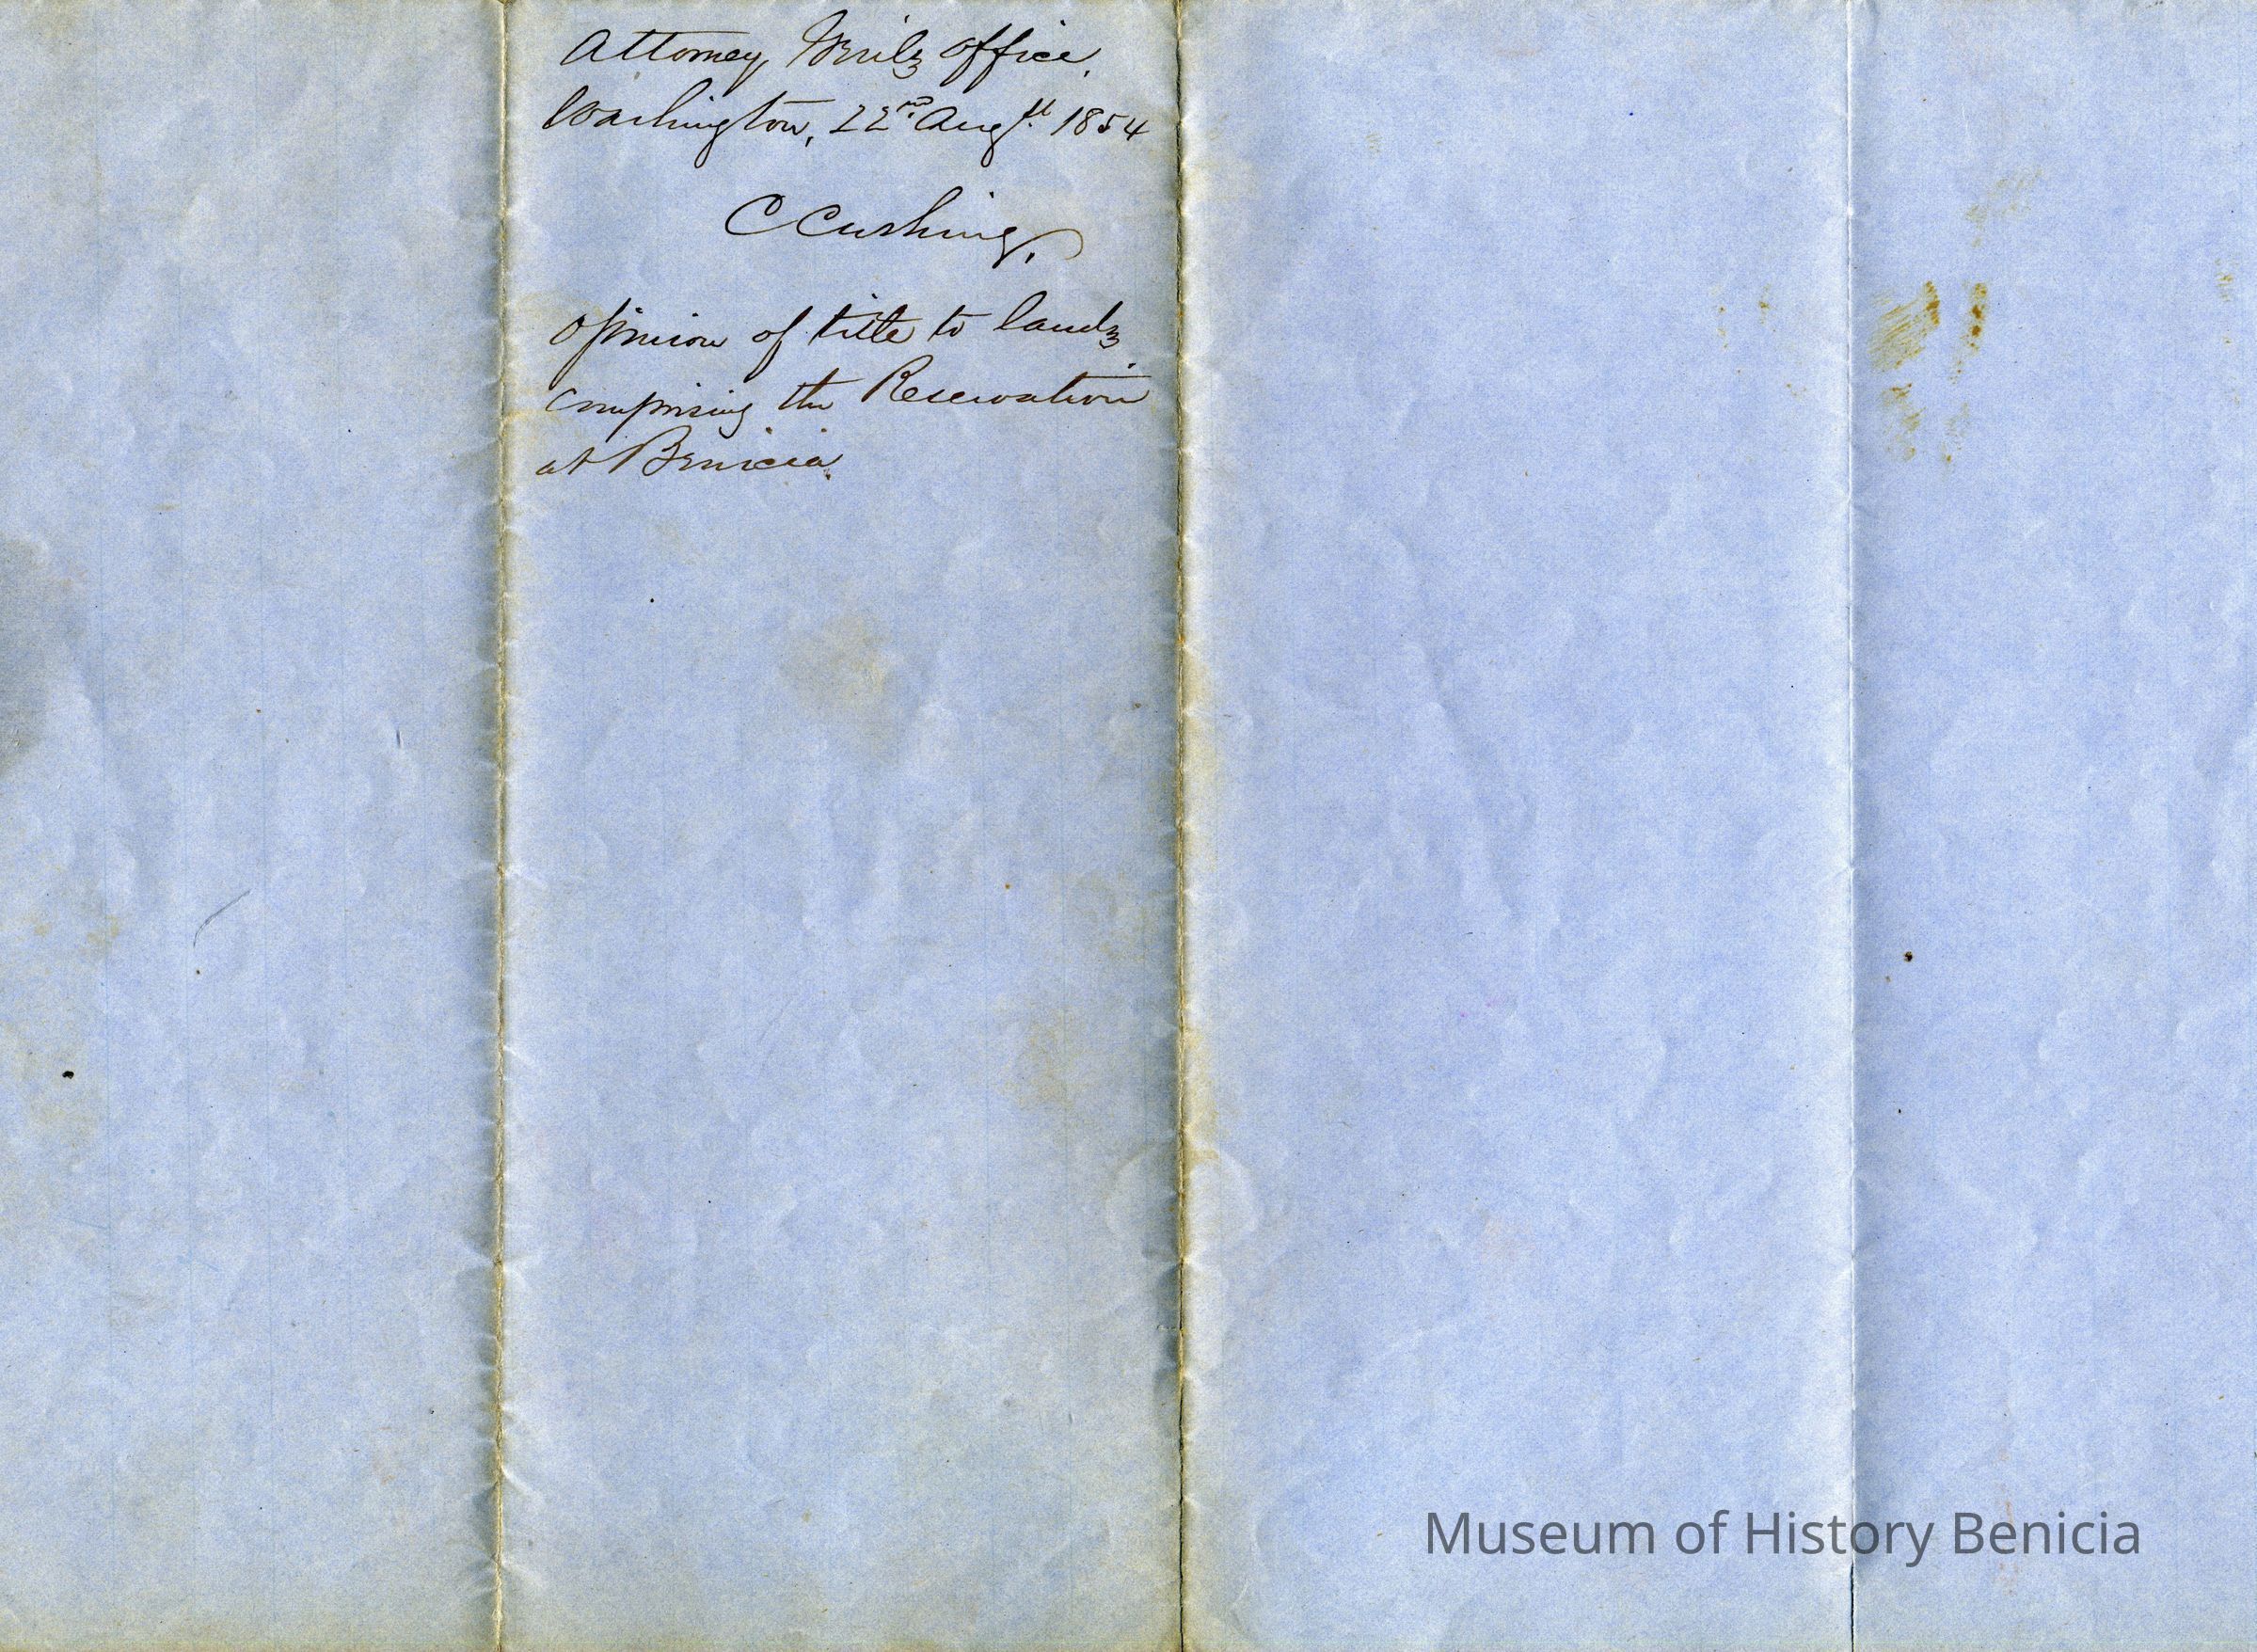 Attorney Genls Office,
Washington, 22nd Augst. 1854
C Cushing.
Opinion of title to lands
comprising the Reservation
at Benicia.
Museum of History Benicia